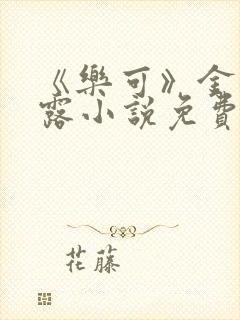 《樂可》金
露小說免費
花藤